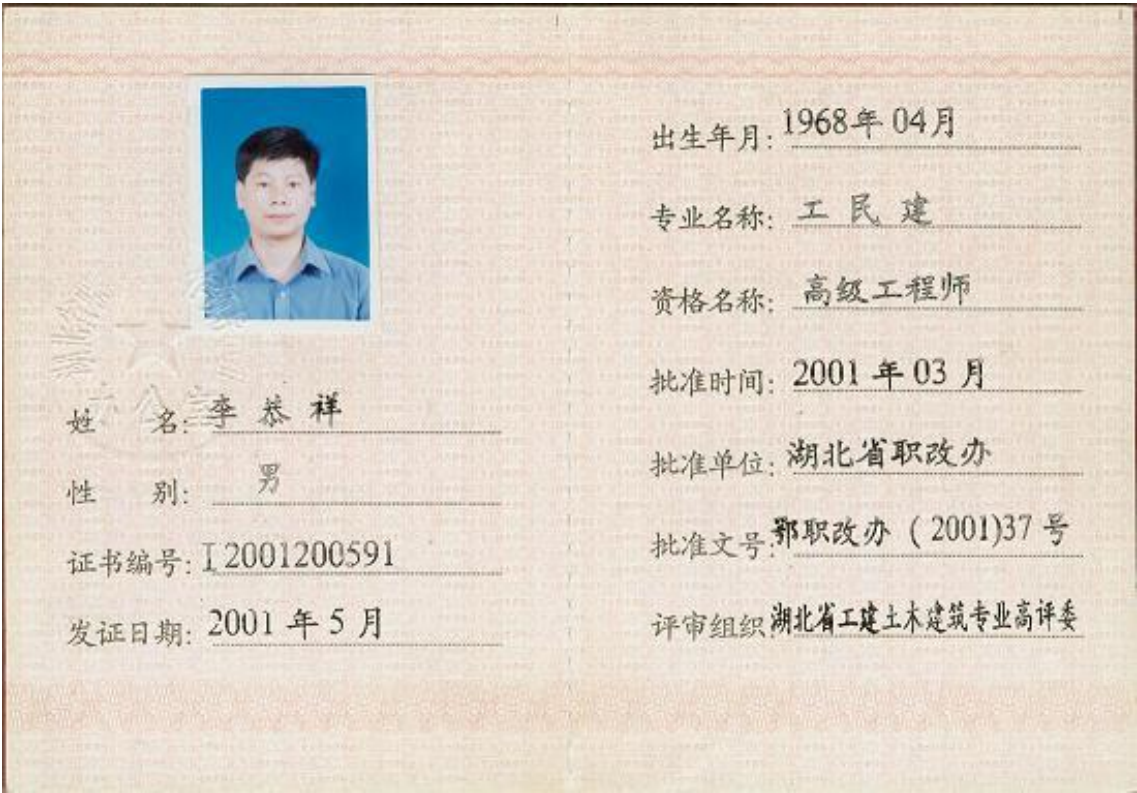 姓 名: 李恭祥
性 别: 男
证书编号: I2001200591
发证日期: 2001 年 5 月
出生年月: 1968年 04月
专业名称: 工民建
资格名称: 高级工程师
批准时间: 2001 年 03 月
批准单位: 湖北省职改办
批准文号: 鄂职改办 ( 2001)37 号
评审组织 湖北省工建土木建筑专业高评委
办公室